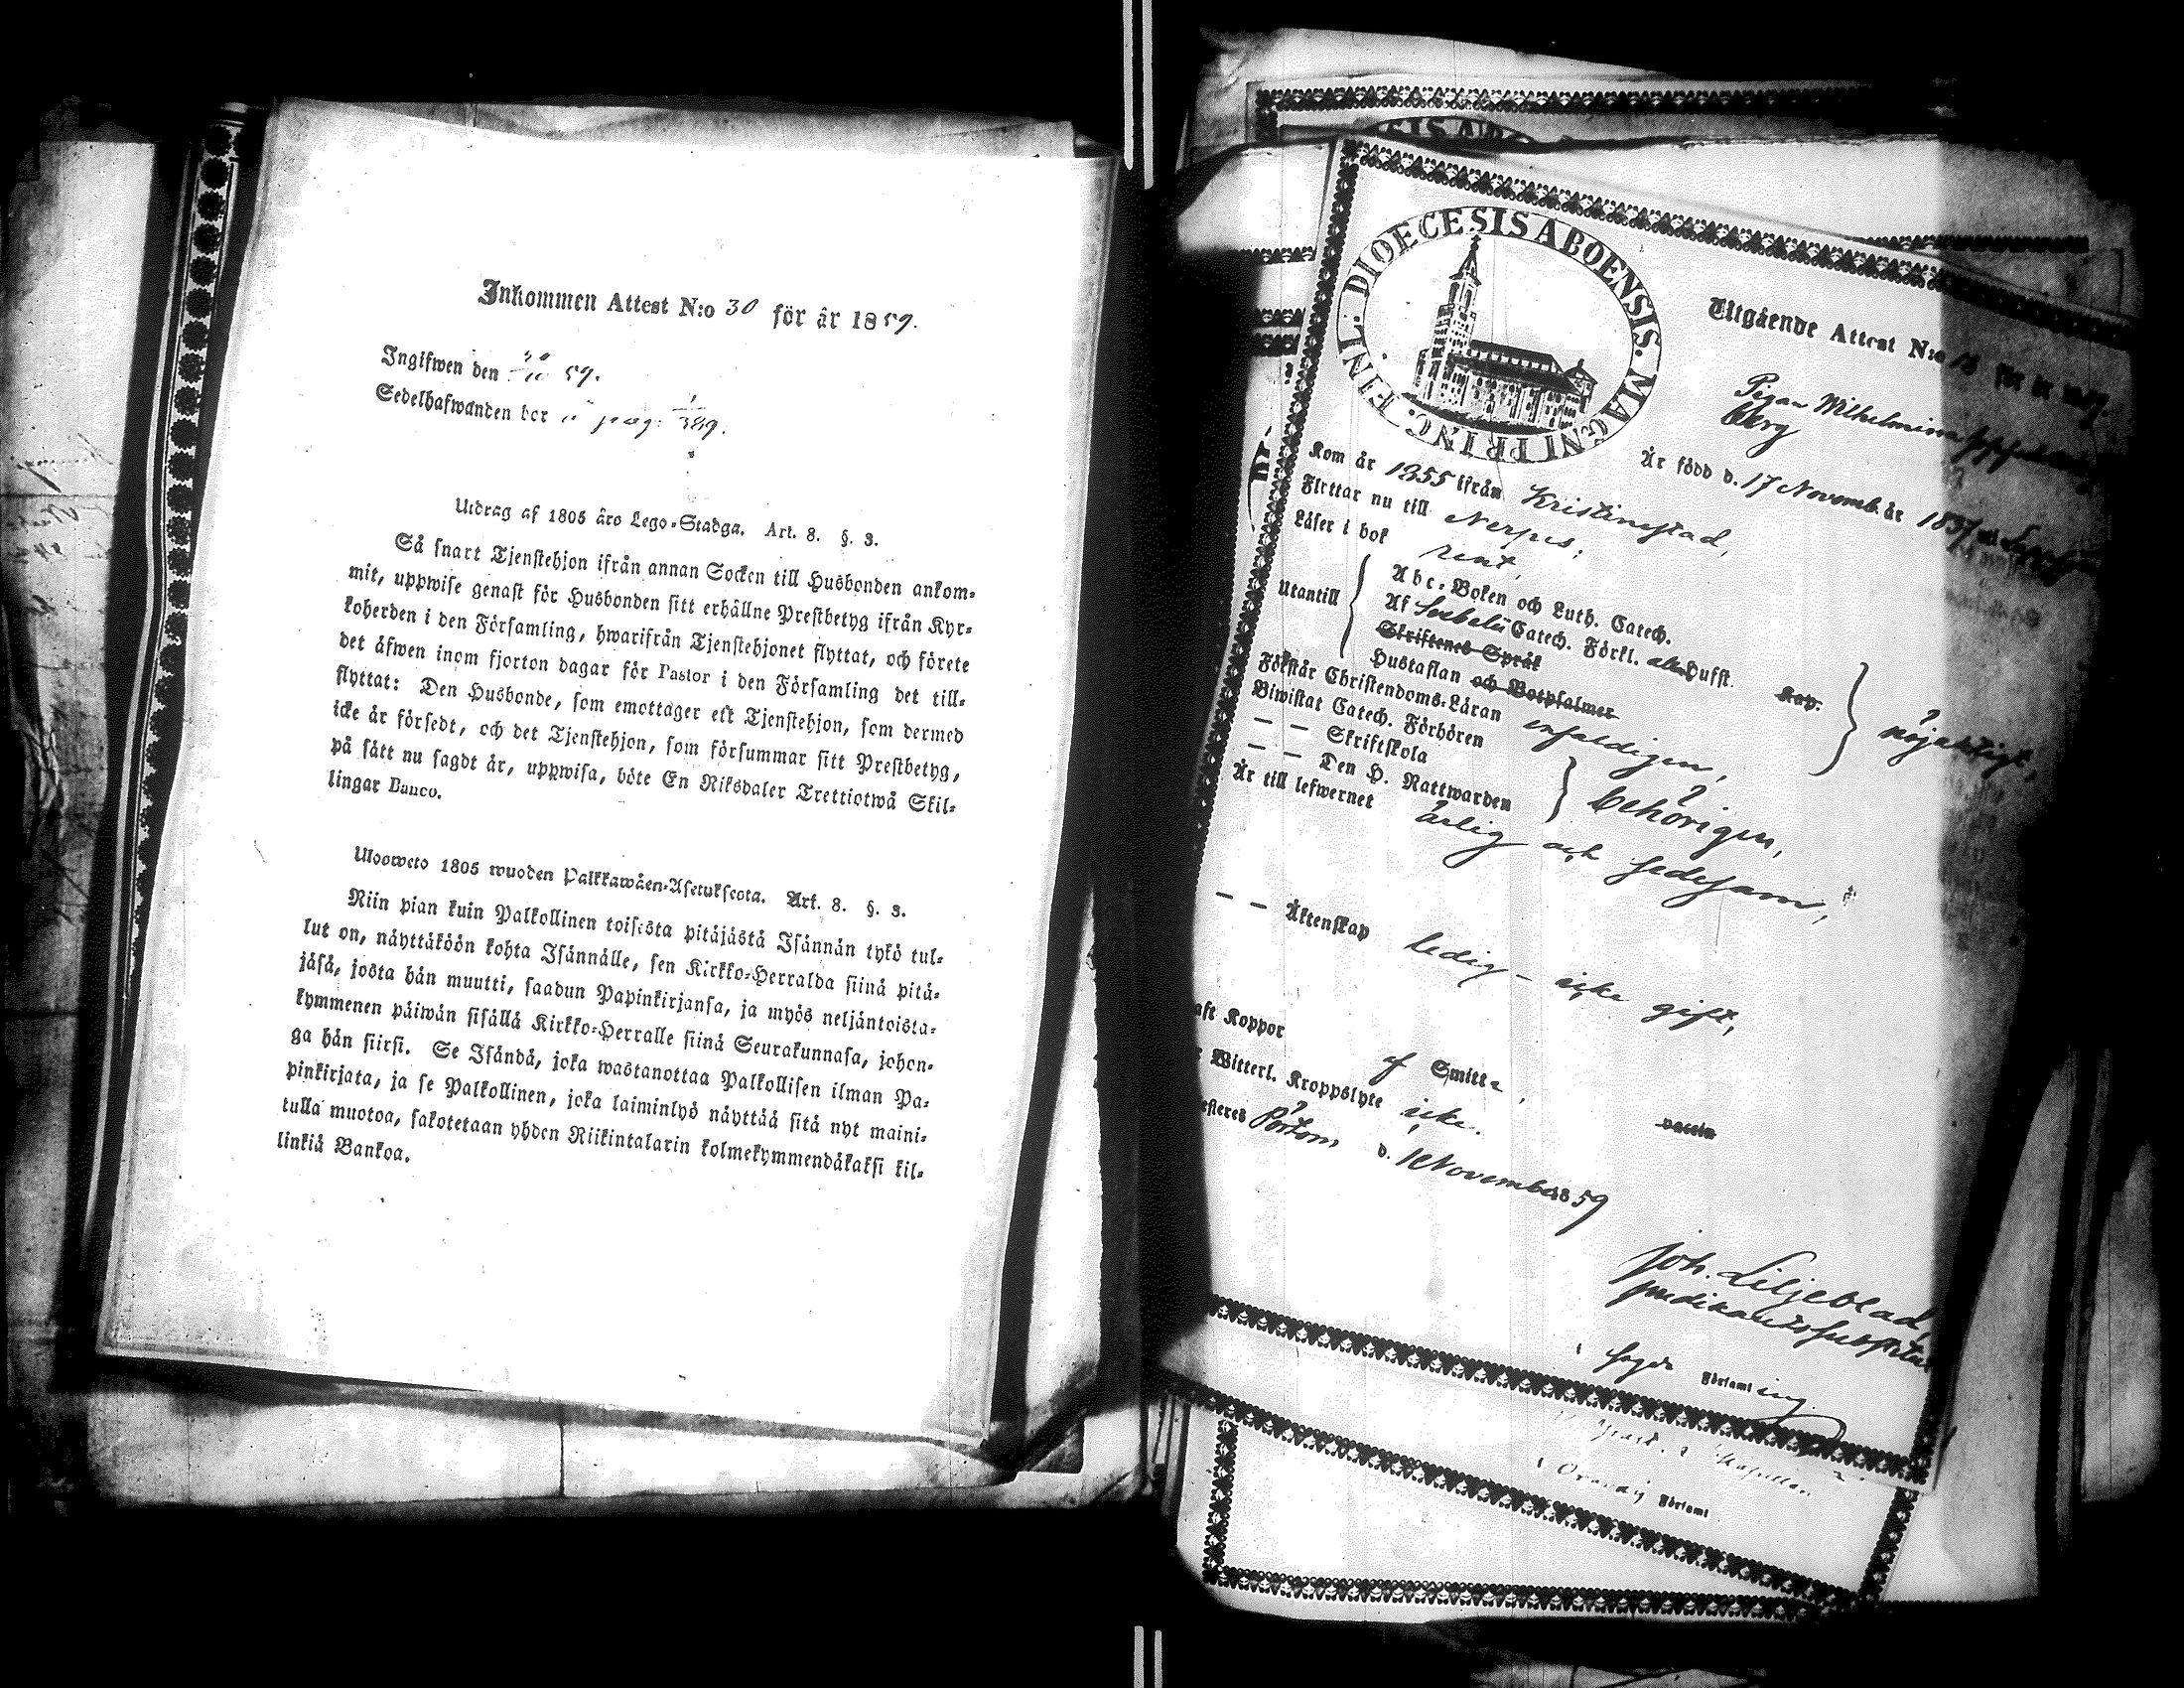 Inkommen Attest N:o 30 för år 1859.
Ingifwen den 59.
Sedelhafwanden bor å pag: 1/389.
Utdrag af 1805 års Lego-Stadga. Art. 8. §. 3.
Så snart Tjenstehjon ifrån annan Socken till Husbonden ankom-
mit, uppwise genast för Husbonden sitt erhållne Prestbetyg ifrån Kyr-
koherden i den Församling, hwarifrån Tjenstehjonet flyttat, och förete
det äfwen inom fjorton dagar för Pastor i den Församling det till-
flyttat: Den Husbonde, som emottager ett Tjenstehjon, som dermed
icke är försedt, och det Tjenstehjon, som försummar sitt Prestbetyg,
på sätt nu sagdt är, uppwisa, böte En Riksdaler Trettiotwå Skil-
lingar Banco.
Ulosweto 1805 wuoden Palkkawäen-Asetuksesta. Art. 8. §. 3.
Niin pian kuin Palkollinen toisesta pitäjästä Isännän tykö tul-
lut on, näyttäköön kohta Isännälle, sen Kirkko-Herralda siinä pitä-
jäsä, josta hän muutti, saadun Papinkirjansa, ja myös neljäntoista-
kymmenen päiwän sisällä Kirkko-Herralle siinä Seurakunnasa, johon-
ga hän siirsi. Se Isändä, joka wastanottaa Palkollisen ilman Pa-
pinkirjata, ja se Palkollinen, joka laiminlyö näyttää sitä nyt maini-
tulla muotoa, sakotetaan yhden Riikintalarin kolmekymmendäkaksi kil-
linkiä Bankoa.
DIOECESIS ABOENSIS. MAGNI PRINC. FINL.
Utgående Attest N:o 18 för år 1859.
Pigan Wilhelmina
berg
Är född d. 17 Novemb. år 1837
Kom år 1855 ifrån Kristinestad,
Flyttar nu till Nerpes;
Läser i bok rent,
Utantill
Abc-Boken och Luth. Catech.
Af Sebelii Catech. Förkl. Hufst. Kap.
Skriftenes Språk
Hustaflan och Botpsalmer
nöjaktigt,
Förstår Christendoms-Läran enfaldigen,
Biwistat Catech. Förhören
— — Skriftskola
— — Den H. Nattwarden
behörigen,
Är till lefwernet ärlig och sedesam,
— — Äktenskap ledig – icke gift,
aft Koppor af Smitta, vaccin
Witterl. Kroppslyte icke.
esteres Pörtom d. 1 November 1859
Joh. Liljeblad,
i Församling
i Oravaj Församl